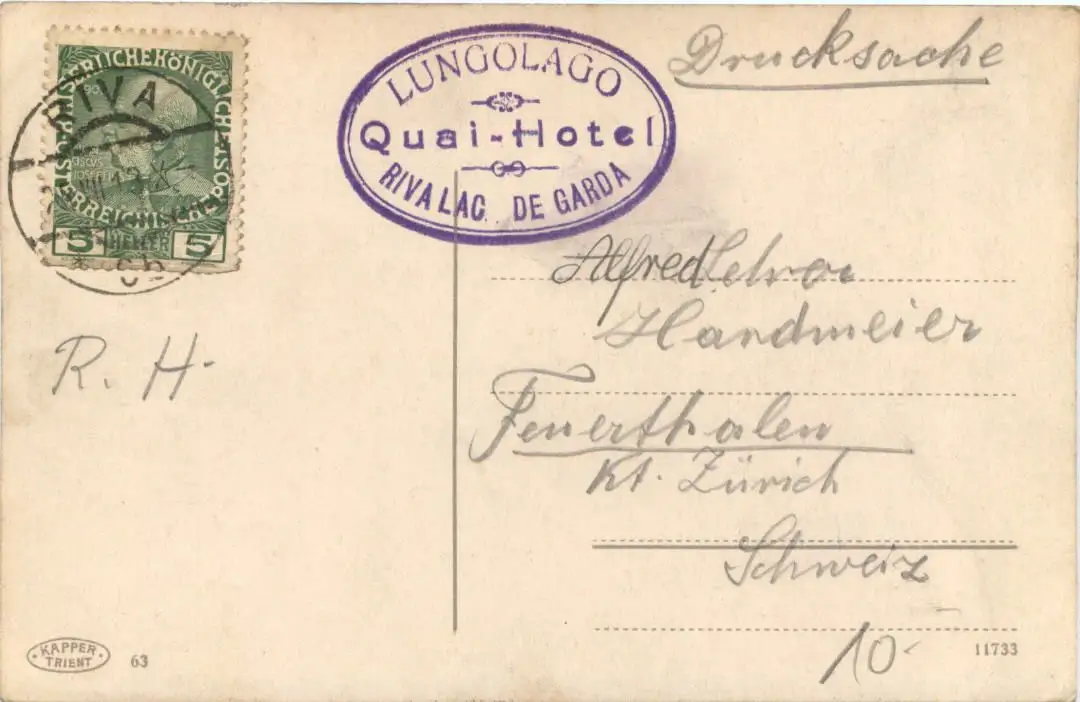 RIVA
5 HELLER 5
LUNGOLAGO
Quai-Hotel
RIVA LAC DE GARDA
Drucksache
Alfred
Handmeier
Feuerthalen
Kt. Zürich
Schweiz
R. H.
10-
KAPPER
TRIENT
63
11733